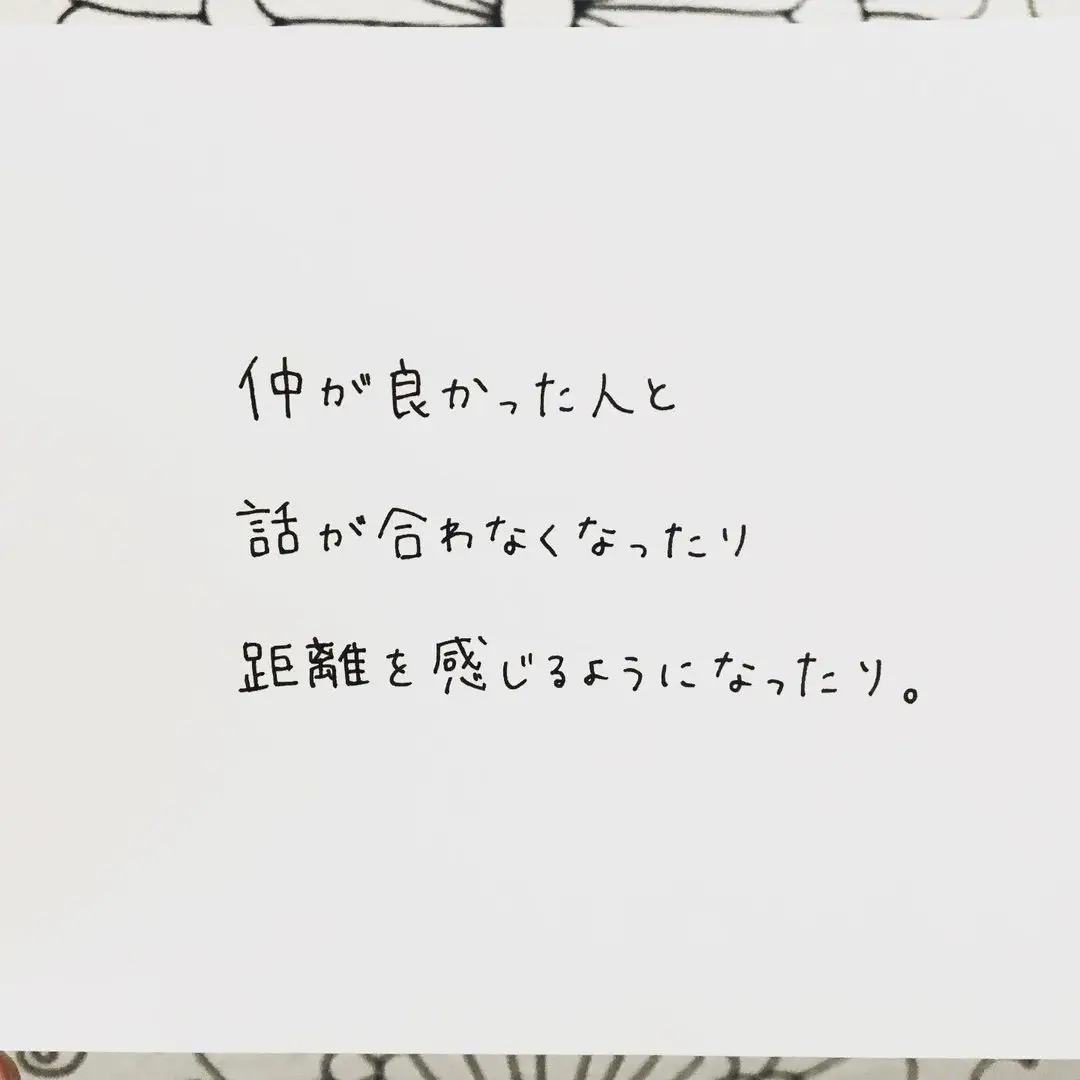 仲が良かった人と
話が合わなくなったり
距離を感じるようになったり。